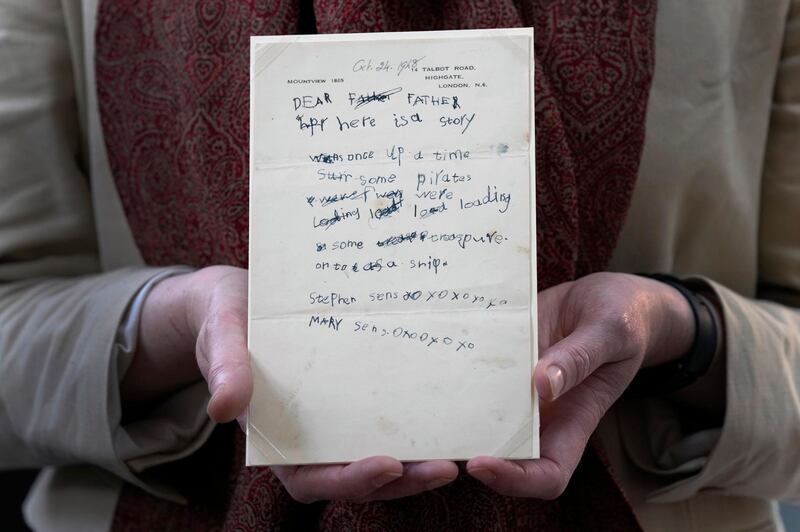 Oct. 24. 1948
MOUNTVIEW 1805
14 TALBOT ROAD,
HIGHGATE,
LONDON, N.6.
DEAR Father FATHER
here is a story
once up a time
Sum some pirates
were were
loading load load loading
some treaspure.
on to a ship.
Stephen sens xoxoxoxoxo
MARY sens. oxooxoxo